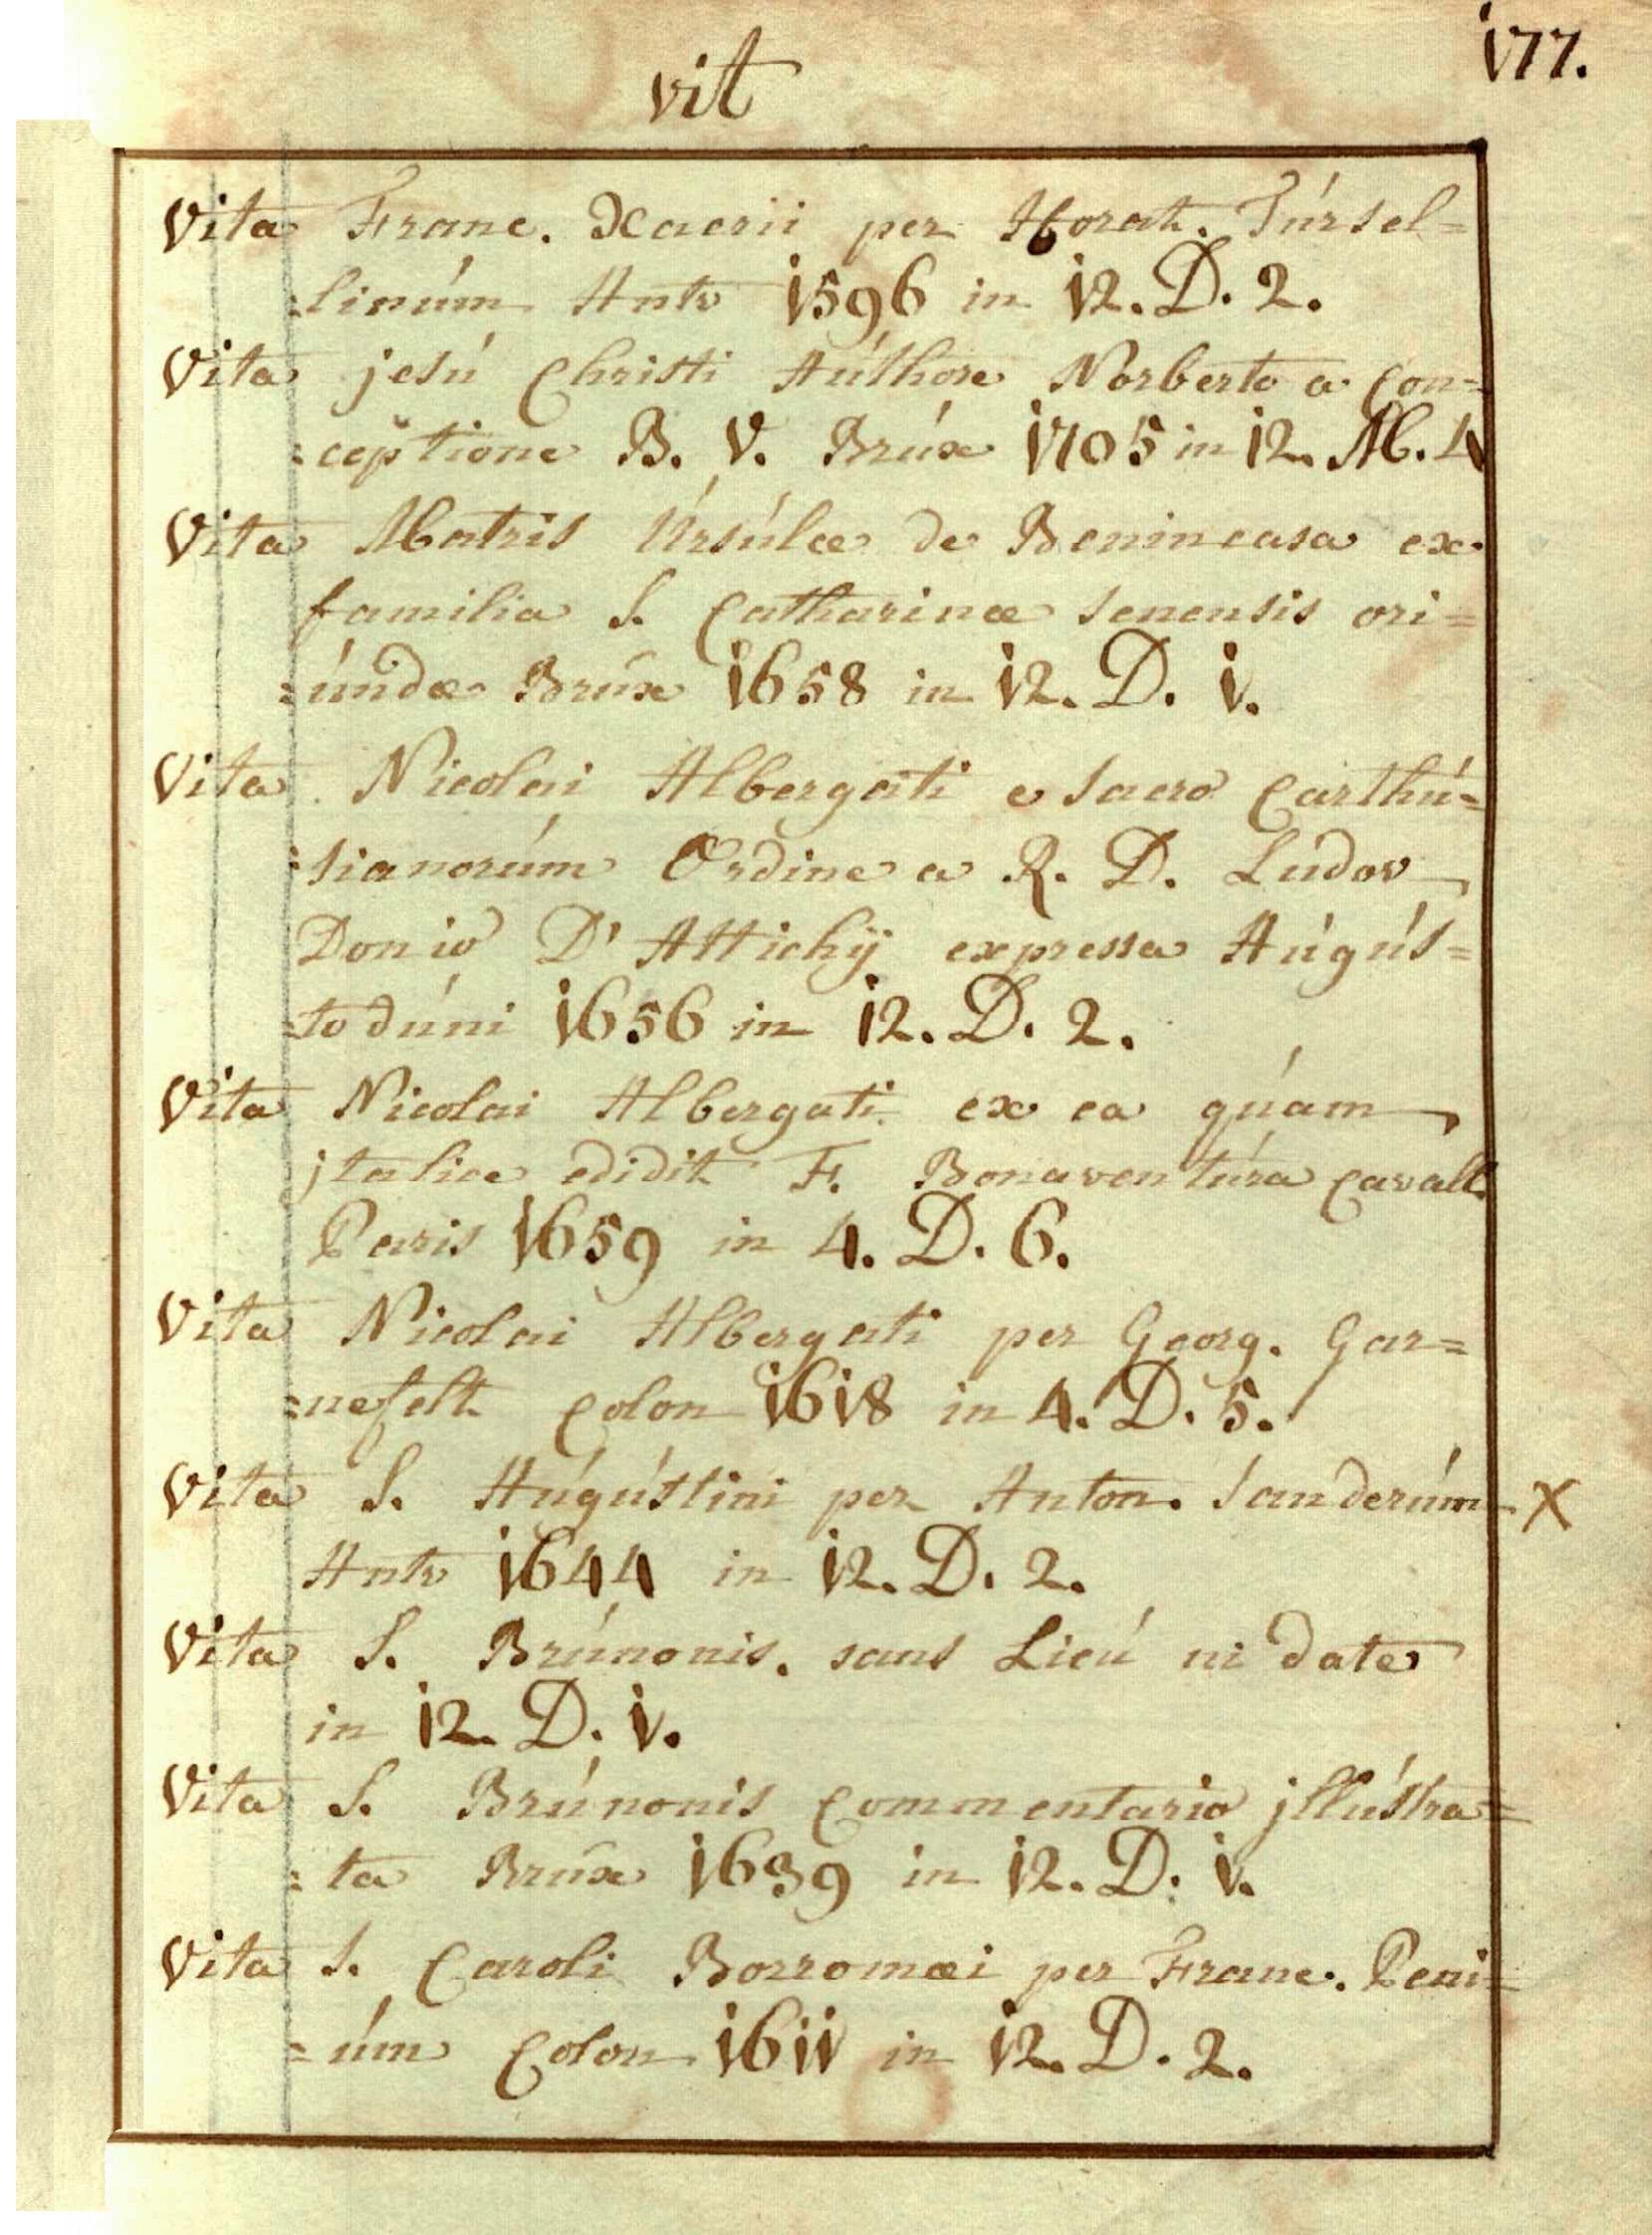 vit
177.
Vita Franc. Xaerii per Horat. Túrsel=
=linúm Antv 1596 in 12. D. 2.
Vita jesú Christi Aúthore Norberto a Con=
=ceptione B. V. Brúx 1705 in 12. M. 4
Vita Matris Úrsúlæ de Benincasa ex
familia S. Catharinæ senensis ori=
=úndæ Brúx 1658 in 12. D. 1.
Vita Nicolai Albergati e sacro Carthú=
=sianorúm Ordine a R. D. Ludov
Donio D'Attichÿ expressa Aúgús=
=todúni 1656 in 12. D. 2.
Vita Nicolai Albergati ex ea qúam
jtalice edidit F. Bonaventúra Cavall.
Paris 1659 in 4. D. 6.
Vita Nicolai Albergati per Georg. Gar=
=nefelt Colon 1618 in 4. D. 5.
Vita S. Aúgústini per Anton. Sanderúm X
Antv 1644 in 12. D. 2.
Vita S. Brúnonis. sans Lieú ni date
in 12. D. 1.
Vita S. Brúnonis Commentario jllústra=
=ta Brúx 1639 in 12. D. 1.
Vita S. Caroli Borromæi per Franc. Peni=
=úm Colon 1611 in 12. D. 2.